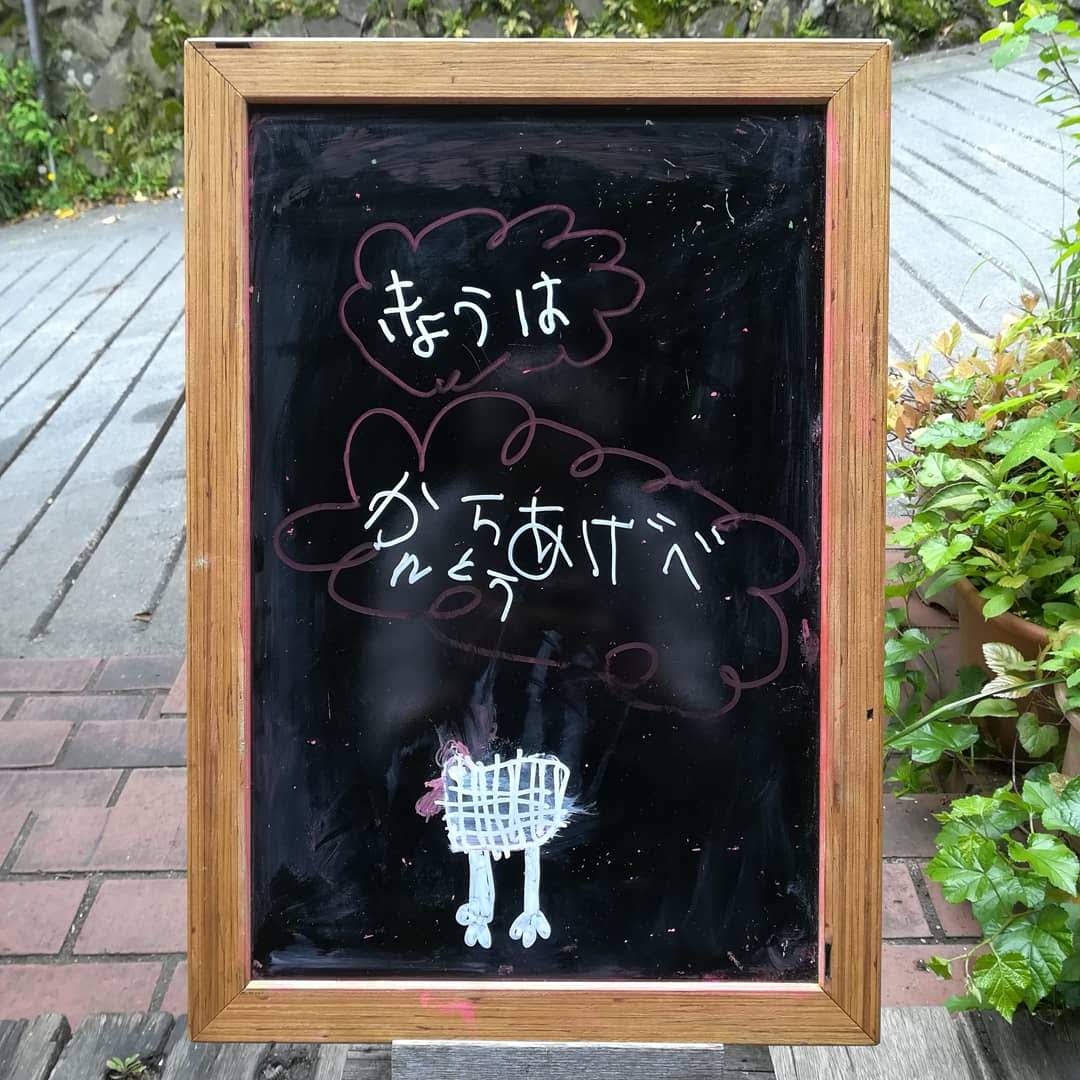 きょうは
からあげべ
んとう